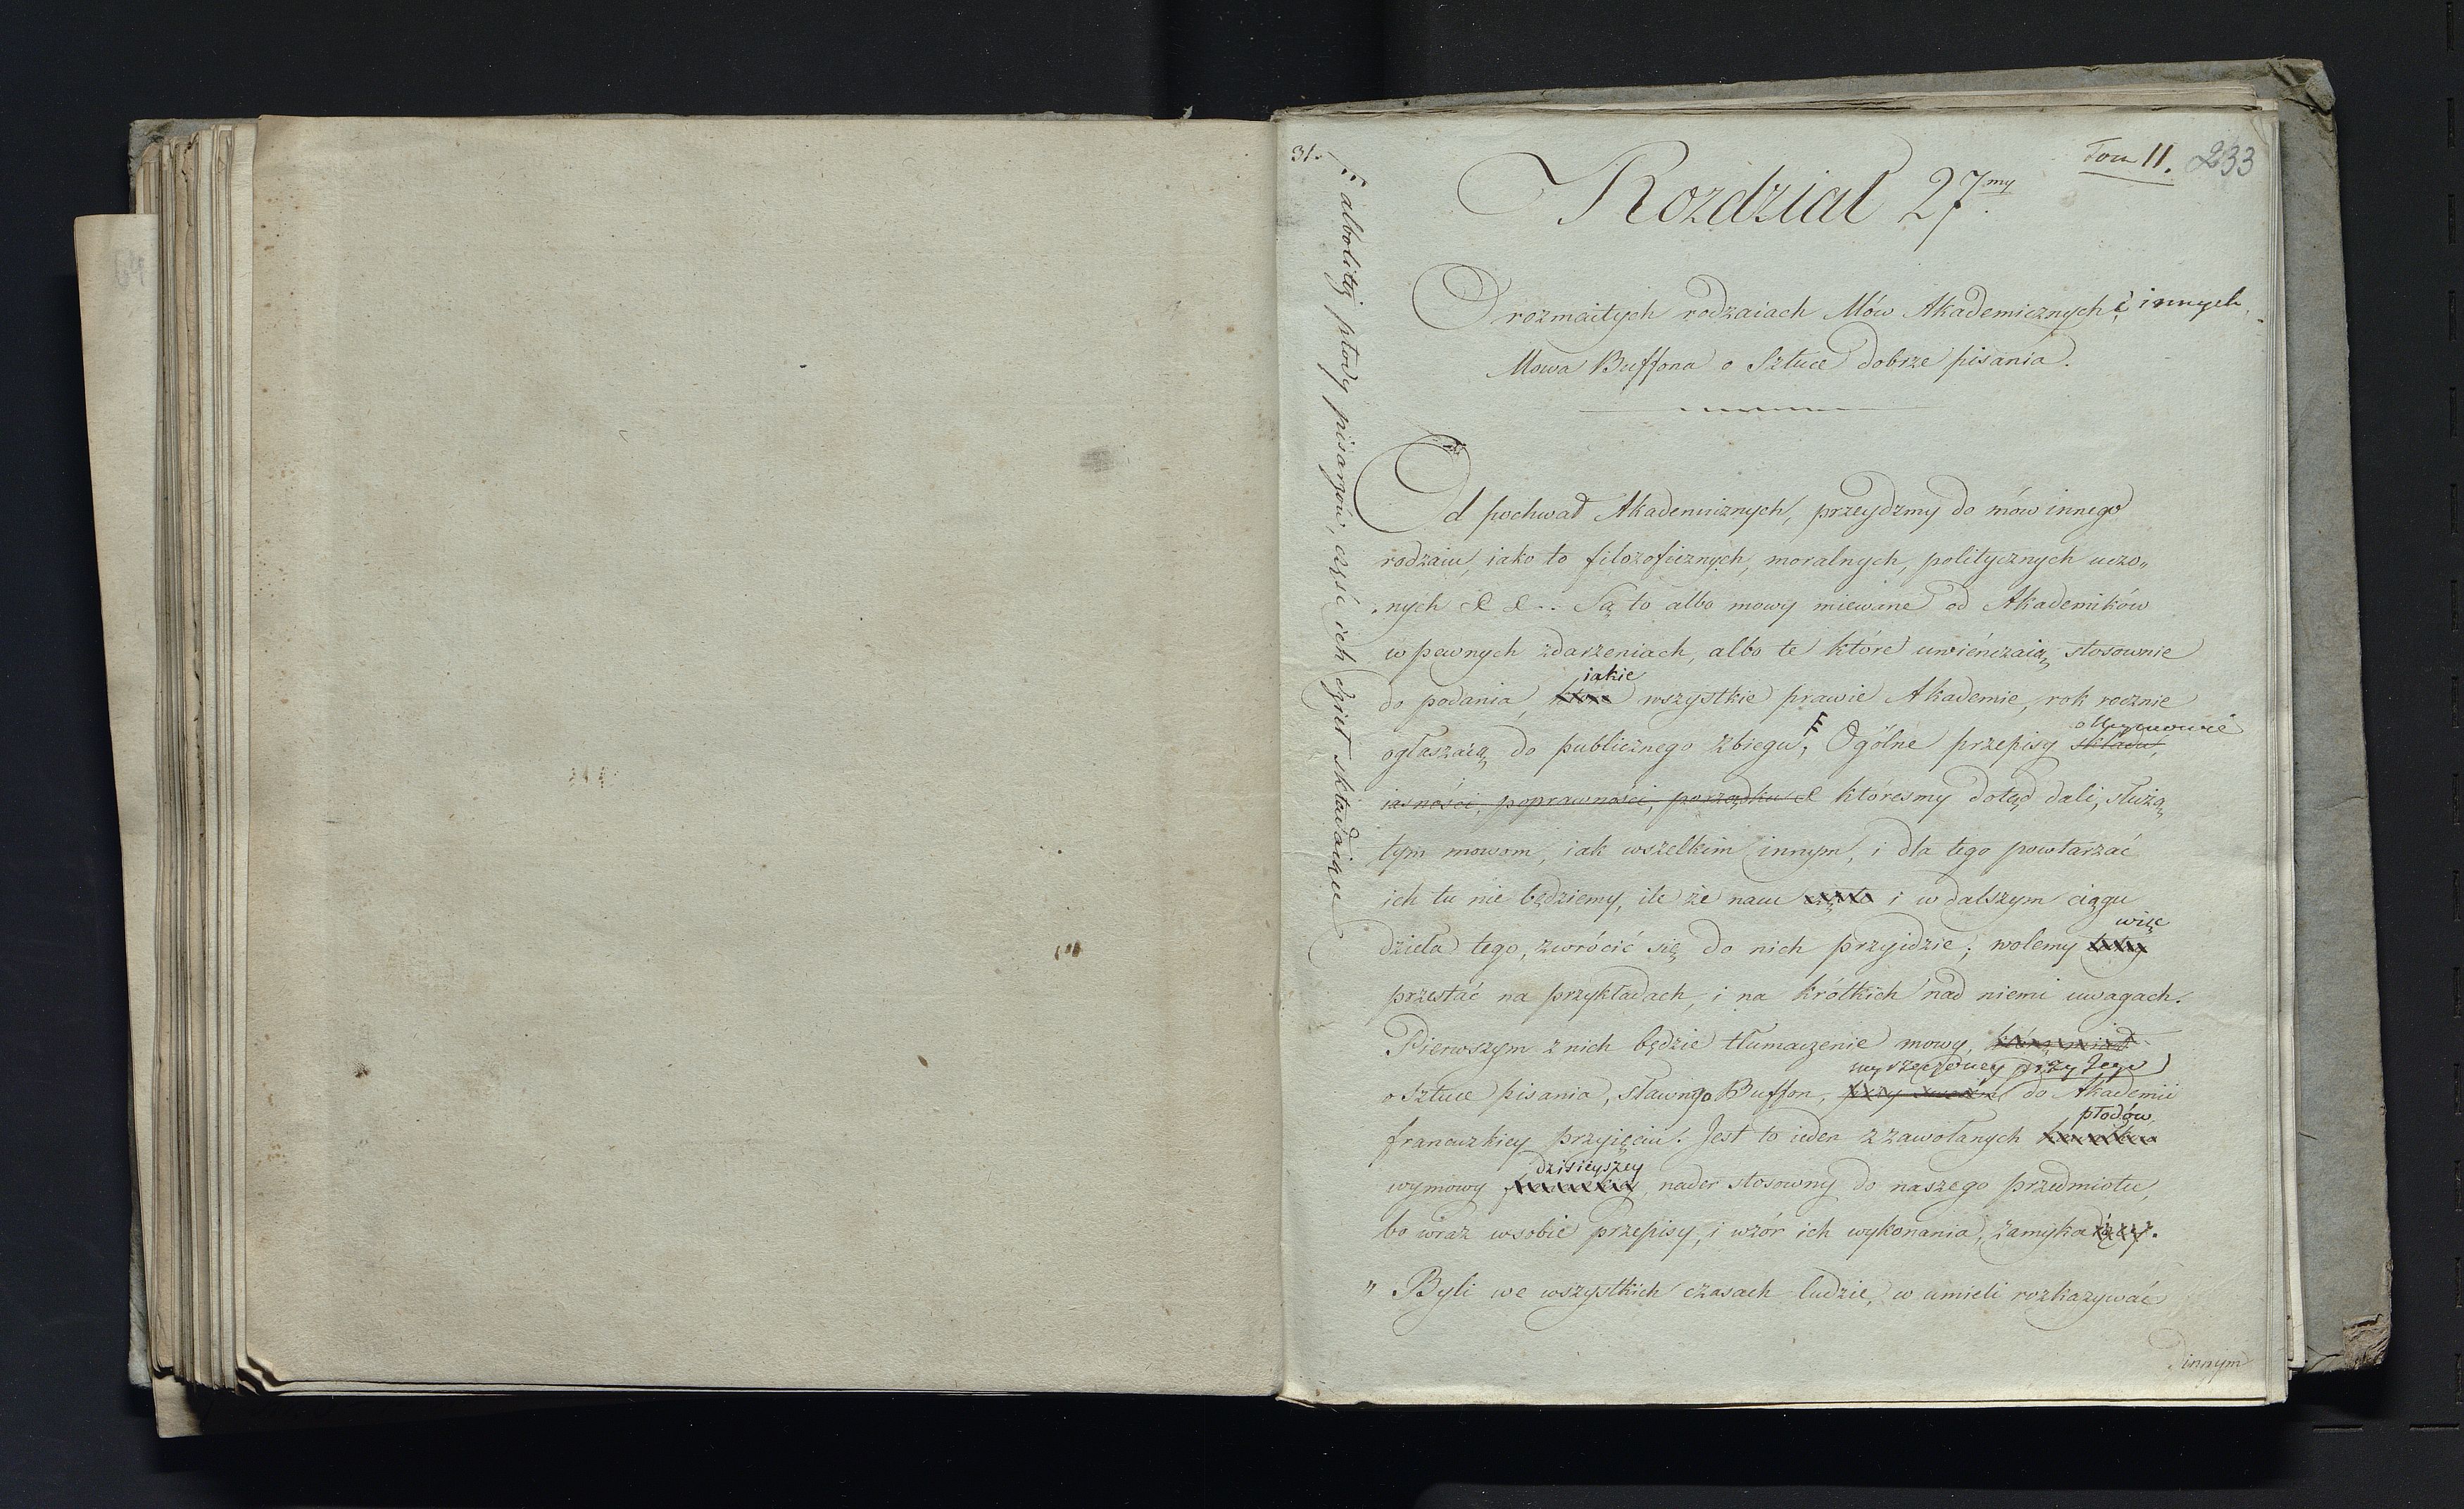 64
31.
Tom II. 233
Rozdział 27my
O rozmaitych rodzaiach Mów Akademicznych i innych,
Mowa Buffona o Sztuce dobrze pisania.
Od pochwał Akademicznych, przeydzmy do mów innego
rodzaiu, iako to filozoficznych, moralnych, politycznych uczo„
nych & &.. Są to albo mowy miewane od Akademików
w pewnych zdarzeniach, albo te które uwieńczaią stosownie
iakie
do podania, wszystkie prawie Akademie, rok rocznie
o Wymowie
ogłaszaią do publicznego zbiegu; F Ogólne przepisy składu,
iasności, poprawności, porządku & któresmy dotąd dali, służą
tym mowom, iak wszelkim innym, i dla tego powtarzać
ich tu nie będziemy, ile że nam i w dalszym ciągu
więc
dzieła tego, zwrócić się do nich przyidzie; wolemy
przestać na przykładach, i na krótkich nad niemi uwagach.
Pierwszym z nich będzie tłumaczenie mowy,
wyrzeczoney przy Jego
o Sztuce pisania, sławnego Buffon, do Akademii
płodów
francuzkiey przyięciu. Jest to ieden z zawołanych
dzisieyszey
wymowy nader stosowny do naszego przedmiotu,
bo wraz w sobie przepisy, i wzór ich wykonania, zamyka.
„ Byli we wszystkich czasach ludzie, co umieli rozkazywać
innym
F albo litéj płody pisarzów, część ich dzieł składaiące